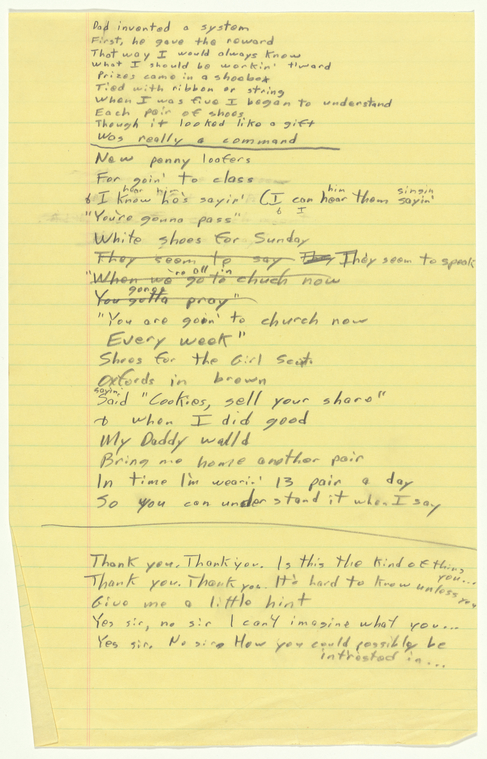 Dad invented a system
First, he gave the reward
That way I would always know
What I should be workin' t'ward
Prizes came in a shoebox
Tied with ribbon or string
When I was five I began to understand
Each pair of shoes
Though it looked like a gift
Was really a command
New penny loafers
For goin' to class
hear him him singin
& I know he's sayin' (I can hear them sayin'
& I
"You're gonna pass"
White shoes for Sunday
They seem to say They They seem to speak
're all in
"When we go to chuch now
gonna
You gotta pray"
"You are goin' to church now
Every week"
Shoes for the Girl Scout
Oxfords in brown
sayin'
Said "Cookies, sell your share"
& when I did good
My Daddy would
Bring me home another pair
In time I'm wearin' 13 pair a day
So you can understand it when I say
Thank you, Thank you. Is this the kind of thing you...
Thank you. Thank you. It's hard to know unless you
Give me a little hint
Yes sir, no sir I can't imagine what you...
Yes sir, No sir, How you could possibly be
intrested in...